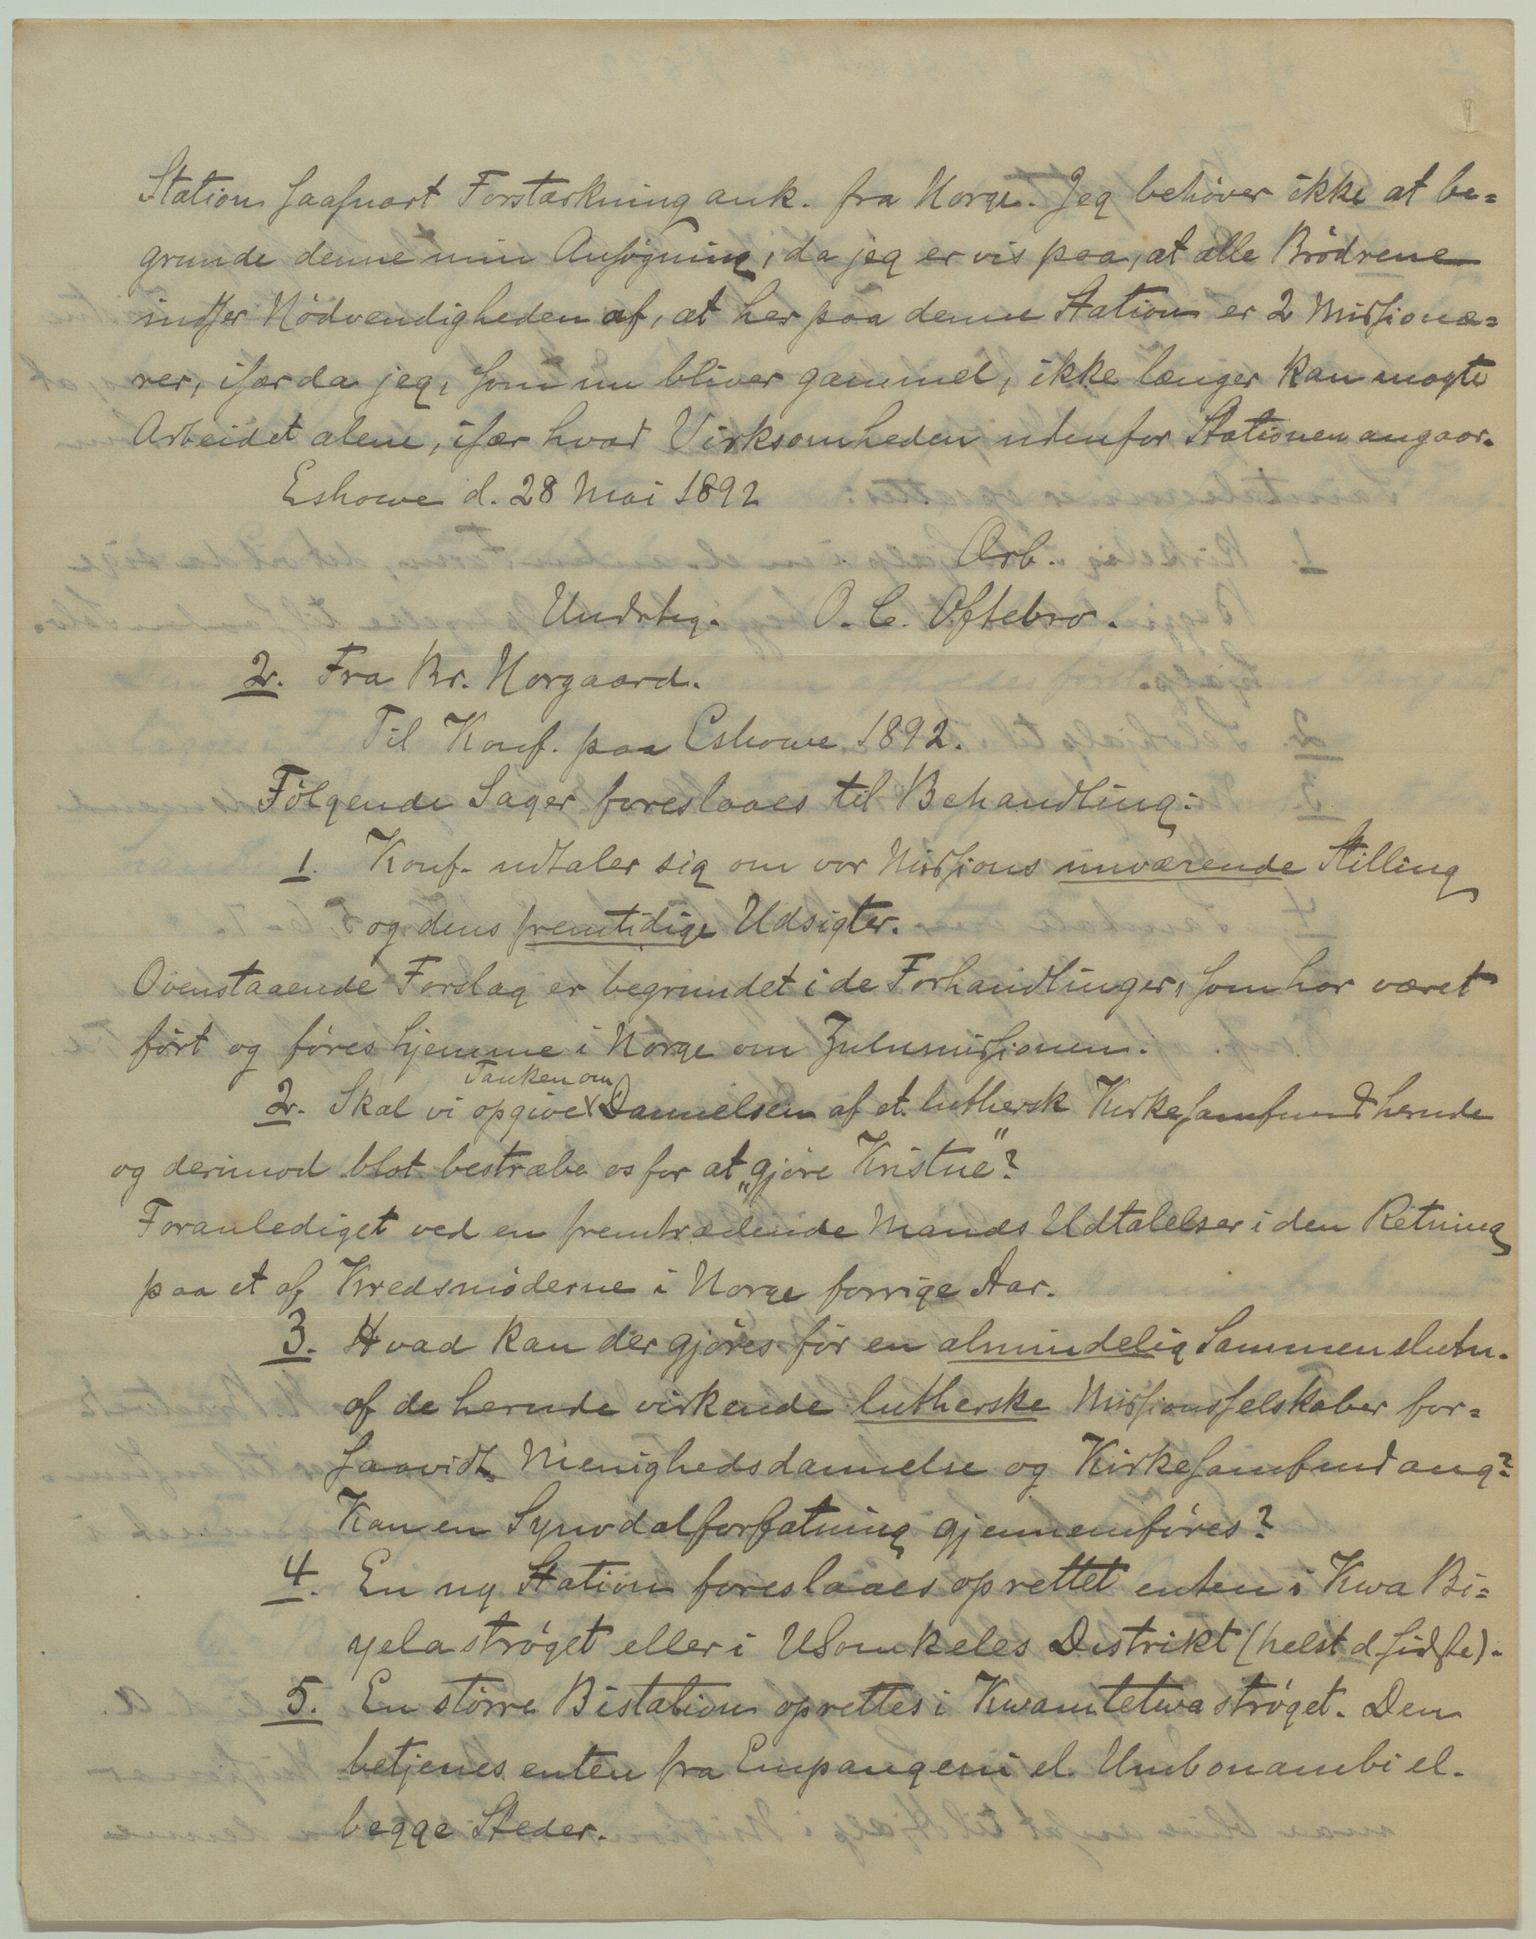 Station saasnart Forstærkning ank. fra Norge. Jeg behøver ikke at be=
grunde denne min Ansøgning, da jeg er vis paa, at alle Brødrene
indser Nødvendigheden af, at her paa denne Station er 2 Missionæ=
rer, især da jeg, som nu bliver gammel, ikke længer kan magte
Arbeidet alene, især hvad Virksomheden udenfor Stationen angaar.
Eshowe d. 28 Mai 1892
Ærb.
Undrteg. O. C. Oftebro.
2. Fra Br. Norgaard.
Til Konf. paa Eshowe 1892.
Følgende Sager foreslaaes til Behandling:
1. Konf. udtaler sig om vor Missions nuværende Stilling
og dens fremtidige Udsigter.
Ovenstaaende Forslag er begrundet i de Forhandlinger, som har været
ført og føres hjemme i Norge om Zulumissionen.
Tanken om
2. Skal vi opgive Dannelsen af et luthersk Kirkesamfund hernede
og derimod blot bestræbe os for at „gjøre Kristne"?
Foranlediget ved en fremtrædende Mands Udtalelser i den Retning
paa et af Kredsmøderne i Norge forrige Aar.
3. Hvad kan der gjøres for en almindelig Sammenslutn.
af de hernede virkende lutherske Missionsselskaber for=
saavidt Menighedsdannelse og Kirkesamfund ang.?
Kan en Synodalforfatning gjennemføres?
4. En ny Station foreslaaes oprettet enten i Kwa Bi=
yela strøget eller i USomkeles Distrikt (helst d. sidste).
5. En større Bistation oprettes i Kwamtetwa strøget. Den
betjenes enten fra Empangeni el. Umbonambi el.
begge Steder.